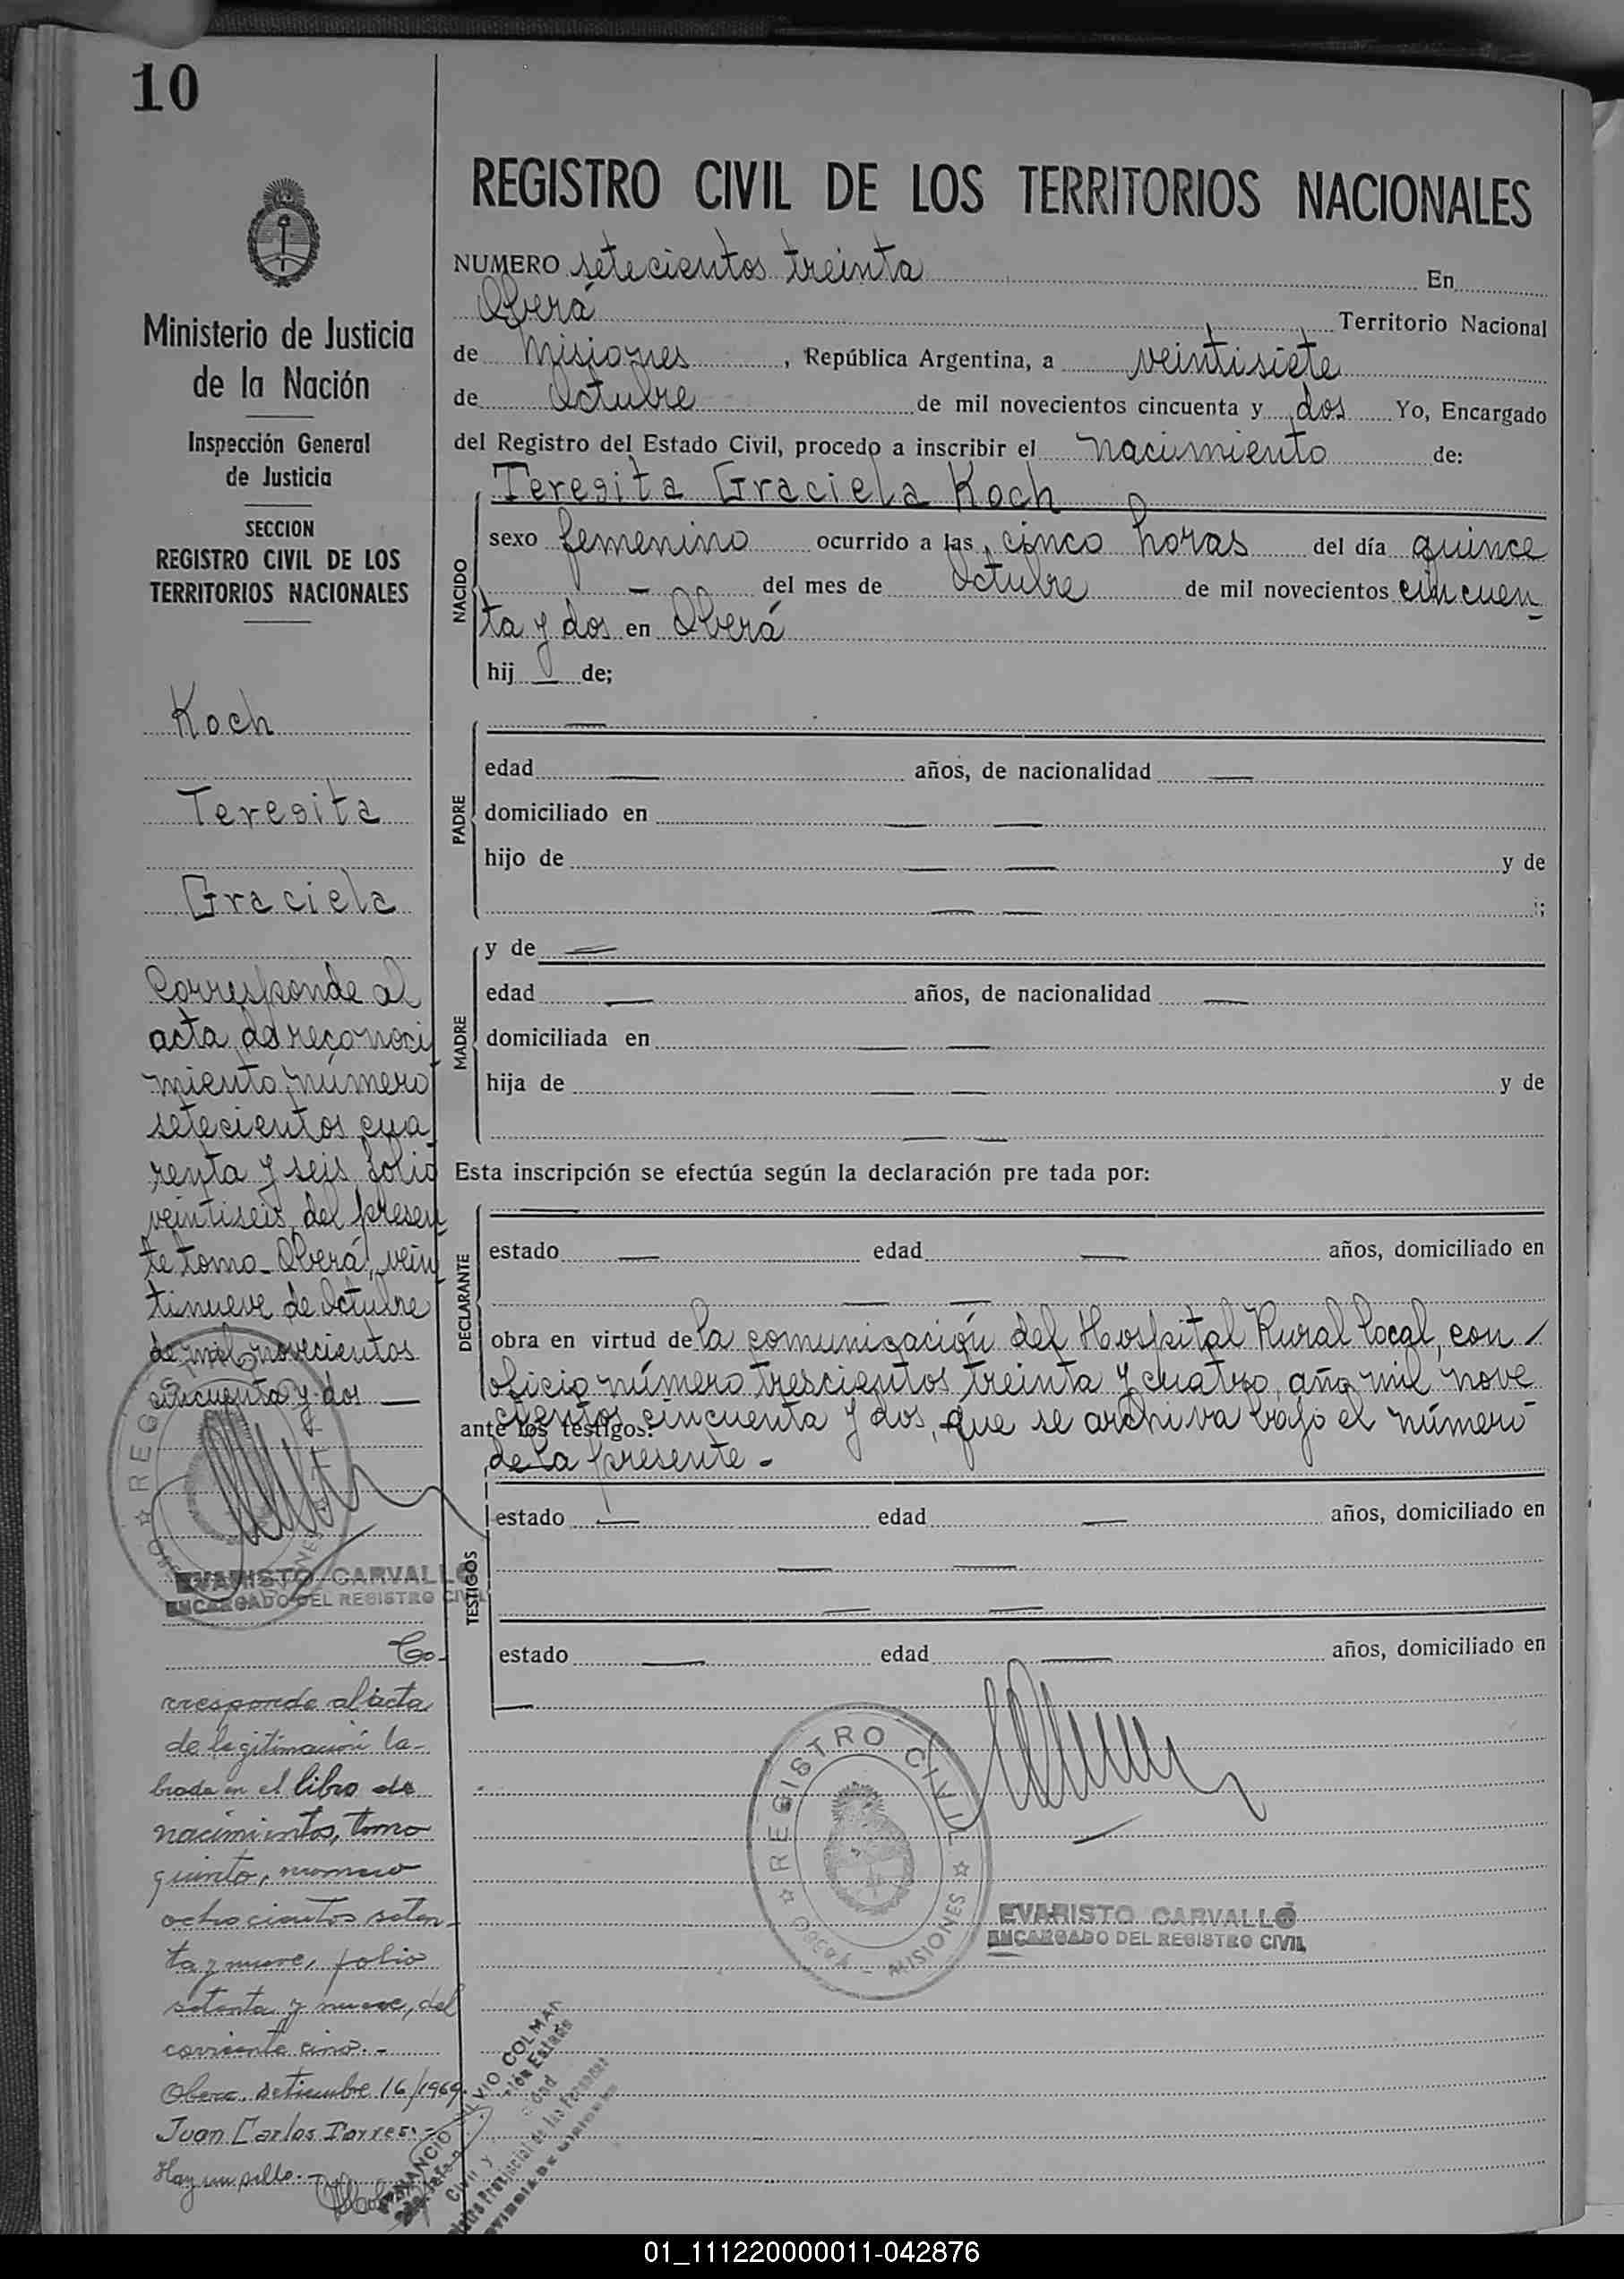 10
Ministerio de Justicia
de la Nación
Inspección General
de Justicia
SECCION
REGISTRO CIVIL DE LOS
TERRITORIOS NACIONALES
Koch
Teresita
Graciela
Corresponde al
acta de reconoci
miento número
setecientos cua
renta y seis folio
veintiseis del presen
te tomo - Oberá, vein
tinueve de Octubre
de mil novecientos
cincuenta y dos —
EVARISTO CARVALLO
ENCARGADO DEL REGISTRO CIVIL
Co-
rresponde al acta
de legitimación la-
brada en el libro de
nacimientos, tomo
quinto, numero
ochocientos seten-
ta y nueve, folio
setenta y nueve, del
corriente año.-
Oberá, Setiembre 16/1969.
Juan Carlos Torres.-
Hay un sello.-
REGISTRO CIVIL DE LOS TERRITORIOS NACIONALES
NUMERO setecientos treinta En
Oberá Territorio Nacional
de Misiones, República Argentina, a veintisiete
de Octubre de mil novecientos cincuenta y dos Yo, Encargado
del Registro del Estado Civil, procedo a inscribir el nacimiento de:
Teresita Graciela Koch
NACIDO
sexo femenino ocurrido a las cinco horas del día quince
— del mes de Octubre de mil novecientos cincuen
ta y dos en Oberá
hij — de;
PADRE
edad — años, de nacionalidad —
domiciliado en — —
hijo de — — y de
— — ;
MADRE
y de —
edad — años, de nacionalidad —
domiciliada en — —
hija de — — y de
— —
Esta inscripción se efectúa según la declaración pre tada por:
DECLARANTE
estado — edad — años, domiciliado en
— —
obra en virtud de la comunicación del Hospital Rural local, con /
oficio número trescientos treinta y cuatro, año mil nove
cientos cincuenta y dos, que se archiva bajo el número
ante los testigos:
de la presente -
TESTIGOS
estado — edad — años, domiciliado en
— —
— —
estado — edad — años, domiciliado en
—
REGISTRO CIVIL
MISIONES
EVARISTO CARVALLO
ENCARGADO DEL REGISTRO CIVIL
01_111220000011-042876